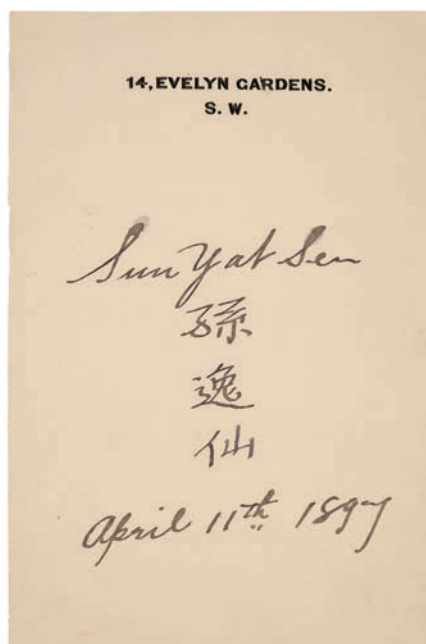 14, EVELYN GARDENS.
S. W.
Sun Yat Sen
孫
逸
仙
April 11th 1897